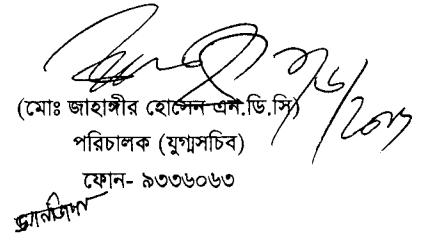 (মোঃ জাহাঙ্গীর হোসেন এন.ডি.সি)
পরিচালক (যুগ্মসচিব)
ফোন- ৯৩৩৬০৬৩